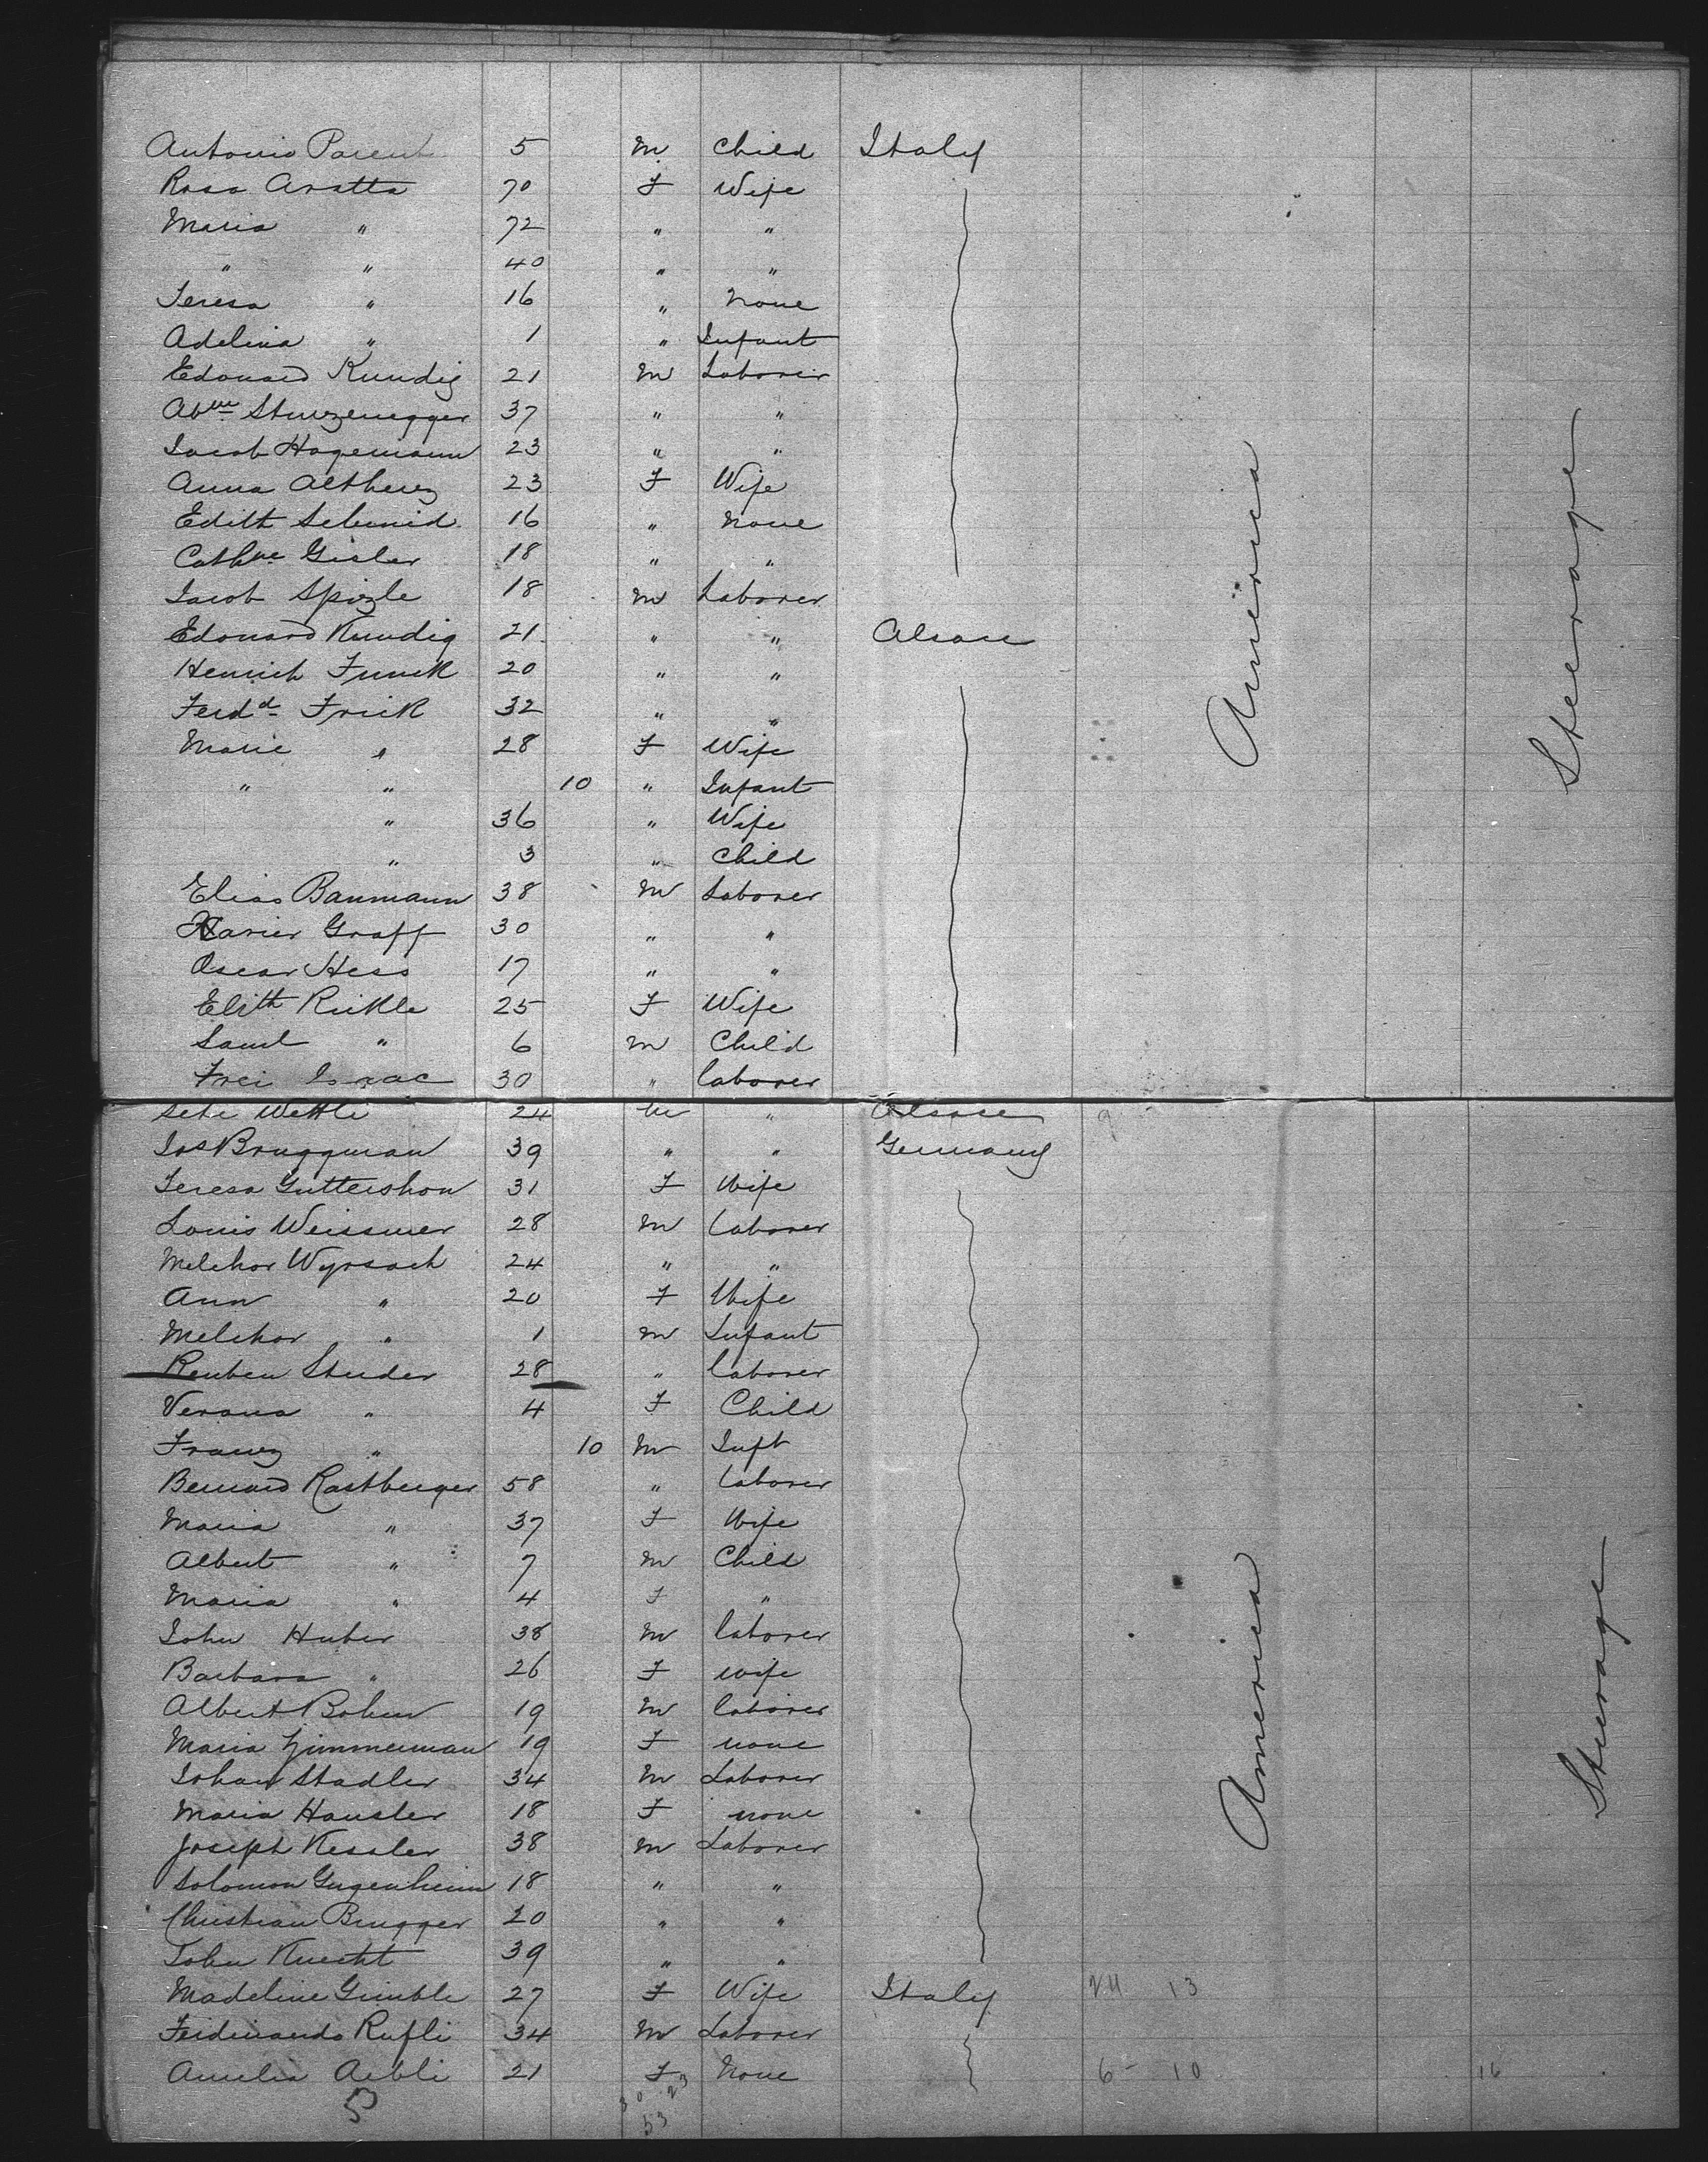 Antonio Parent 5 M Child Italy
Rosa Aratta 70 F Wife
Maria " 72 " "
" " 40 " "
Teresa " 16 " None
Adelina " 1 " Infant
Edouard Kundig 21 M Laborer
Abm Sturzenegger 37 " "
Jacob Hagemann 23 " "
Anna Altherz 23 F Wife
Edith Schmid 16 " None
Cathne Gisler 18 " "
Jacob Spizle 18 M Laborer
Edouard Kundig 21 " " Alsace
Henrich Funck 20 " "
Ferdd Frick 32 " "
Marie " 28 F Wife
" " 10 " Infant
" 36 " Wife
" 3 " Child
Elias Banmann 38 M Laborer
Xavier Graff 30 " "
Oscar Hess 17 " "
Elith Rickle 25 F Wife
Saml " 6 M Child
Frei Isaac 30 " laborer
America
Steerage
Wettli 24 M " Alsace 9
Jos Bruggman 39 " " Germany
Teresa Guttershon 31 F Wife
Louis Weissmer 28 M Laborer
Melchor Wyrsach 24 " "
Ann " 20 F Wife
Melchor " 1 M Infant
Reuben Studer 28 " laborer
Verona " 4 F Child
Franz " 10 M Inft
Bernard Rastberger 58 " laborer
Maria " 37 F Wife
Albert " 7 M Child
Maria " 4 F "
John Huber 38 M laborer
Barbara " 26 F wife
Albert Bohm 19 M laborer
Maria Zimmerman 19 F none
Johan Stadler 34 M Laborer
Maria Hausler 18 F none
Joseph Kessler 38 M Laborer
Solomon Gugenheim 18 " "
Christian Brugger 20 " "
John Knecht 39 " "
Madeline Gimble 27 F Wife Italy 24 13
Ferdinando Rufli 34 M Laborer
Amelia Aebli 21 F None 6 - 10 16
America
Steerage
5
30 23
53